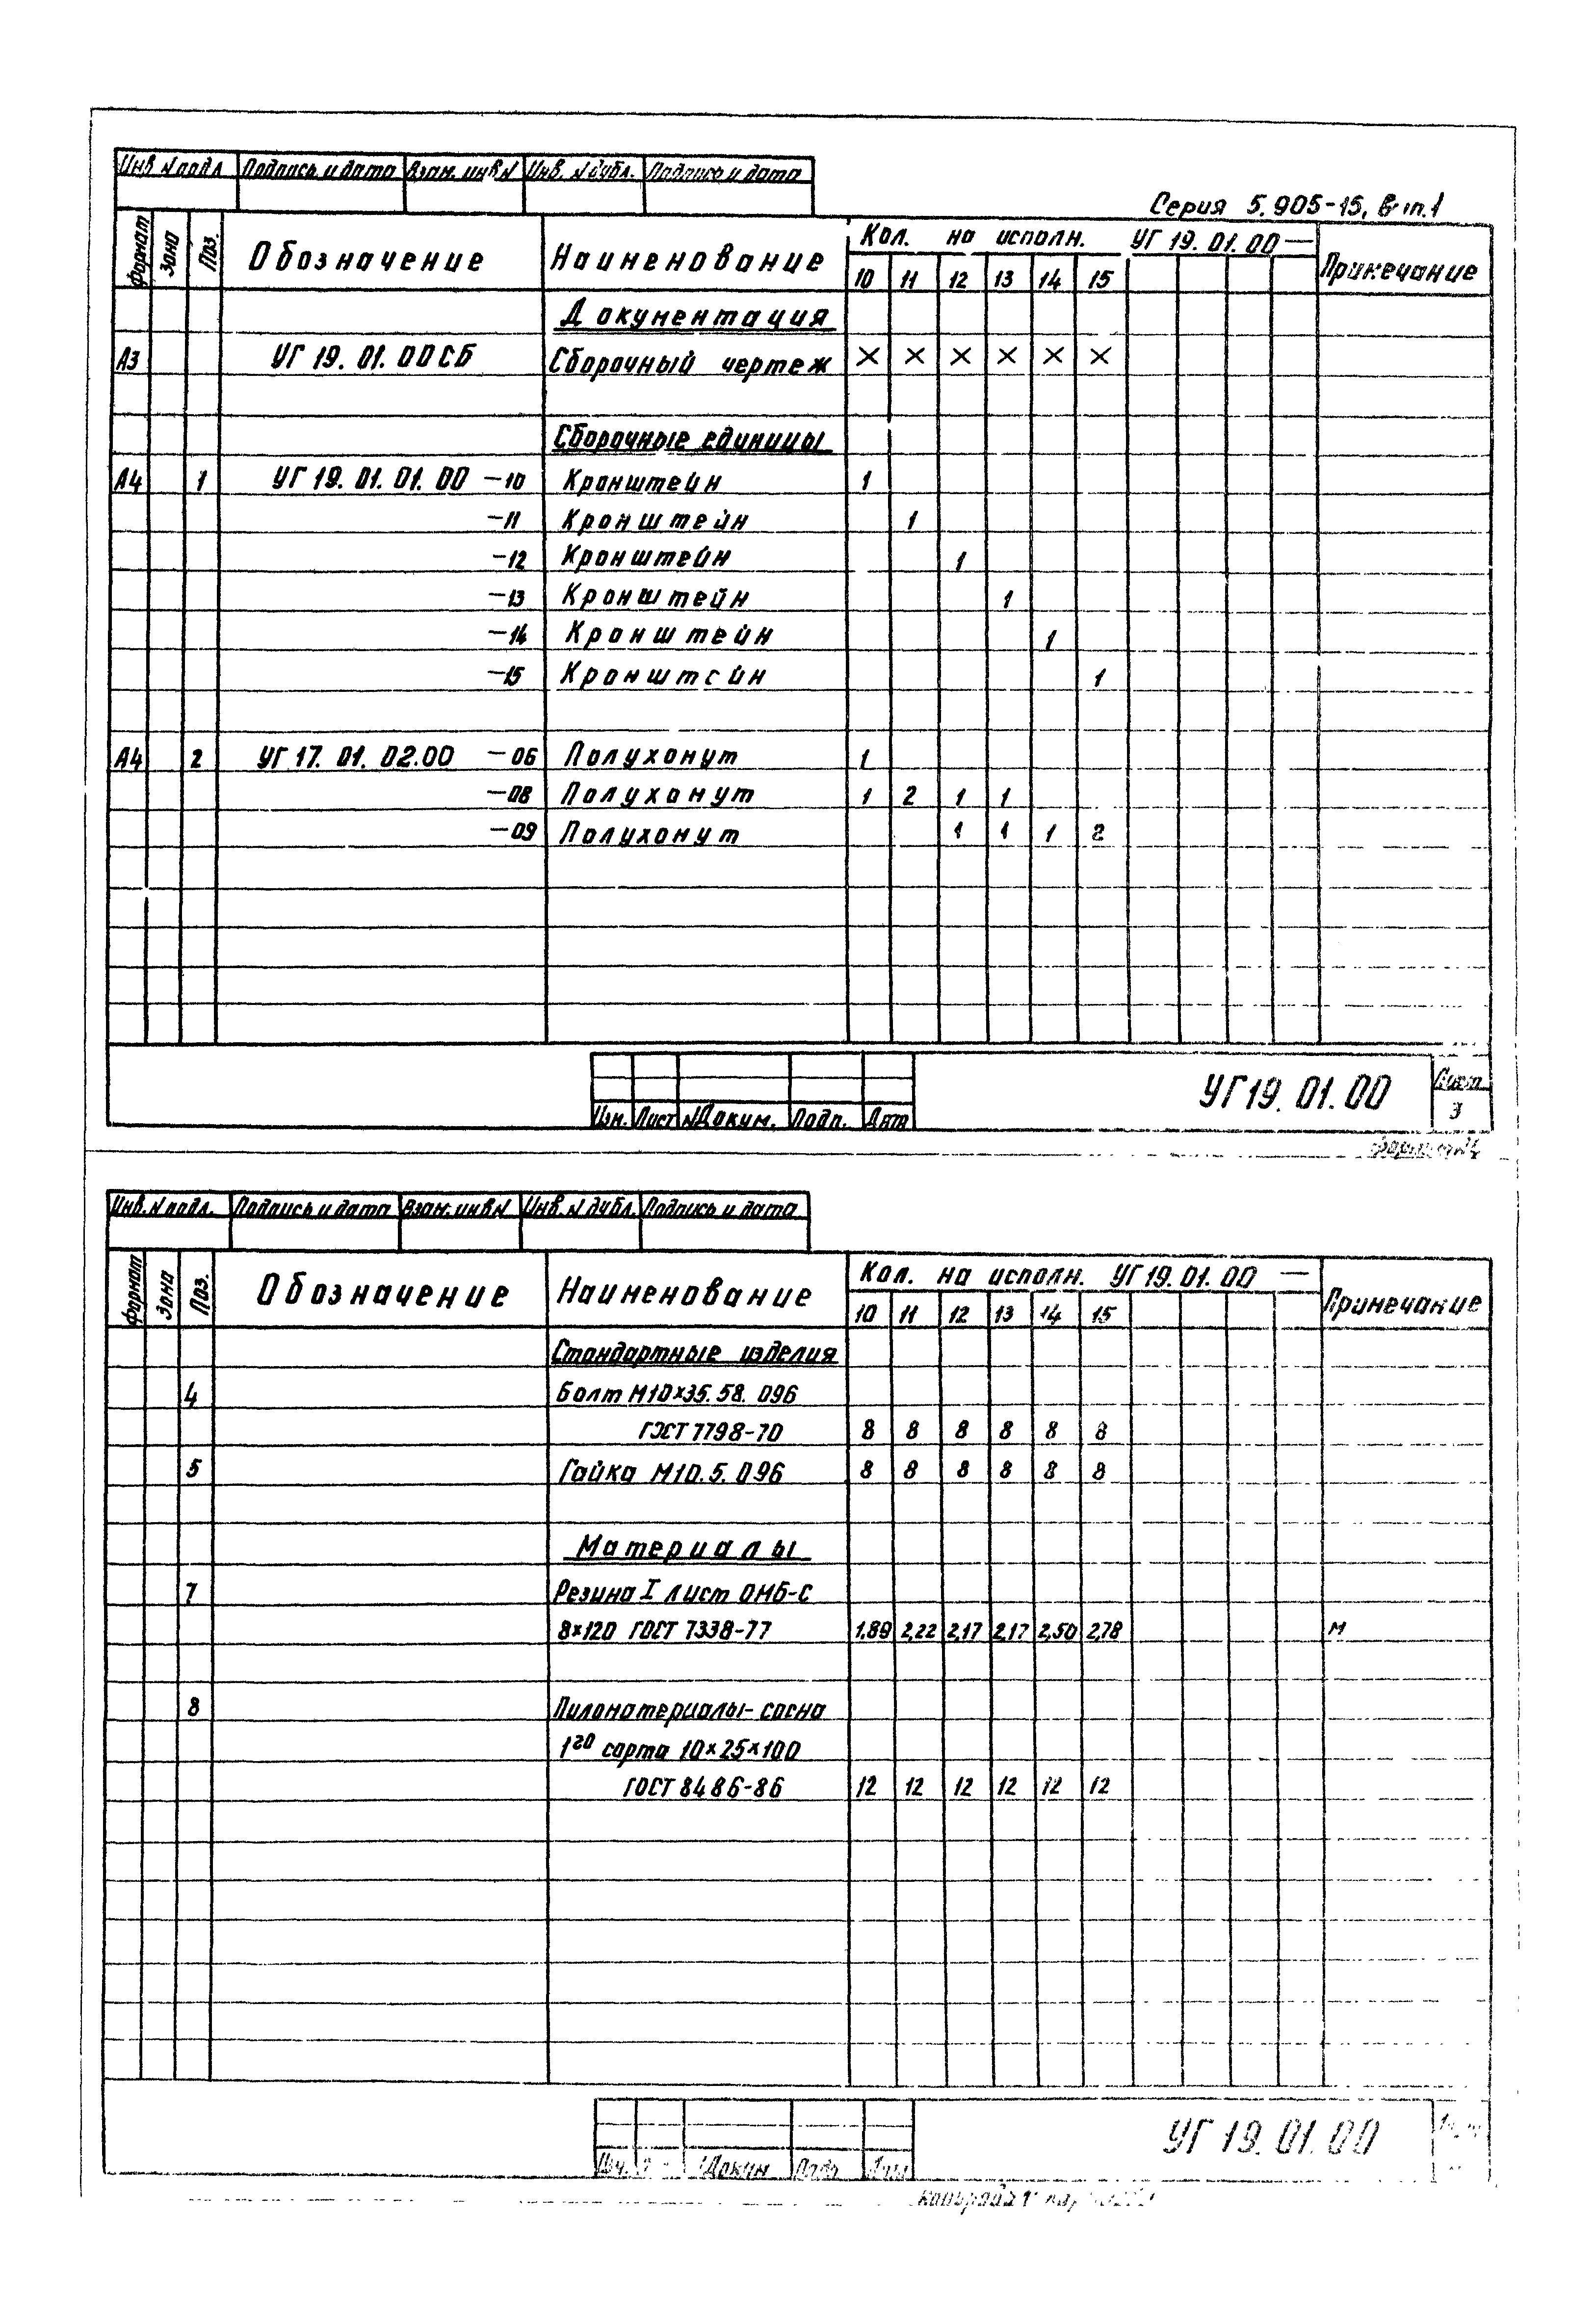 Инв. N подл. Подпись и дата Взам. инв N Инв. N дубл. Подпись и дата
Серия 5.905-15, вып.1
Формат Зона Поз. Обозначение Наименование Кол. на исполн. УГ 19.01.00 — Примечание
10 11 12 13 14 15
Документация
А3 УГ 19.01.00 СБ Сборочный чертеж × × × × × ×
Сборочные единицы
А4 1 УГ 19.01.01.00 —10 Кронштейн 1
—11 Кронштейн 1
—12 Кронштейн 1
—13 Кронштейн 1
—14 Кронштейн 1
—15 Кронштейн 1
А4 2 УГ 17.01.02.00 —06 Полухомут 1
—08 Полухомут 1 2 1 1
—09 Полухомут 1 1 1 2
УГ19.01.00 Лист
Изм. Лист N Докум. Подп. Дата 3
Формат А4
Инв. N подл. Подпись и дата Взам. инв N Инв. N дубл. Подпись и дата
Формат Зона Поз. Обозначение Наименование Кол. на исполн. УГ19.01.00 — Примечание
10 11 12 13 14 15
Стандартные изделия
4 Болт М10×35.58.096
ГОСТ 7798-70 8 8 8 8 8 8
5 Гайка М10.5.096 8 8 8 8 8 8
Материалы
7 Резина I лист ОМБ-С
8×120 ГОСТ 7338-77 1,89 2,22 2,17 2,17 2,50 2,78 м
8 Пиломатериалы-сосна
1го сорта 10×25×100
ГОСТ 8486-86 12 12 12 12 12 12
УГ 19.01.00
Докум